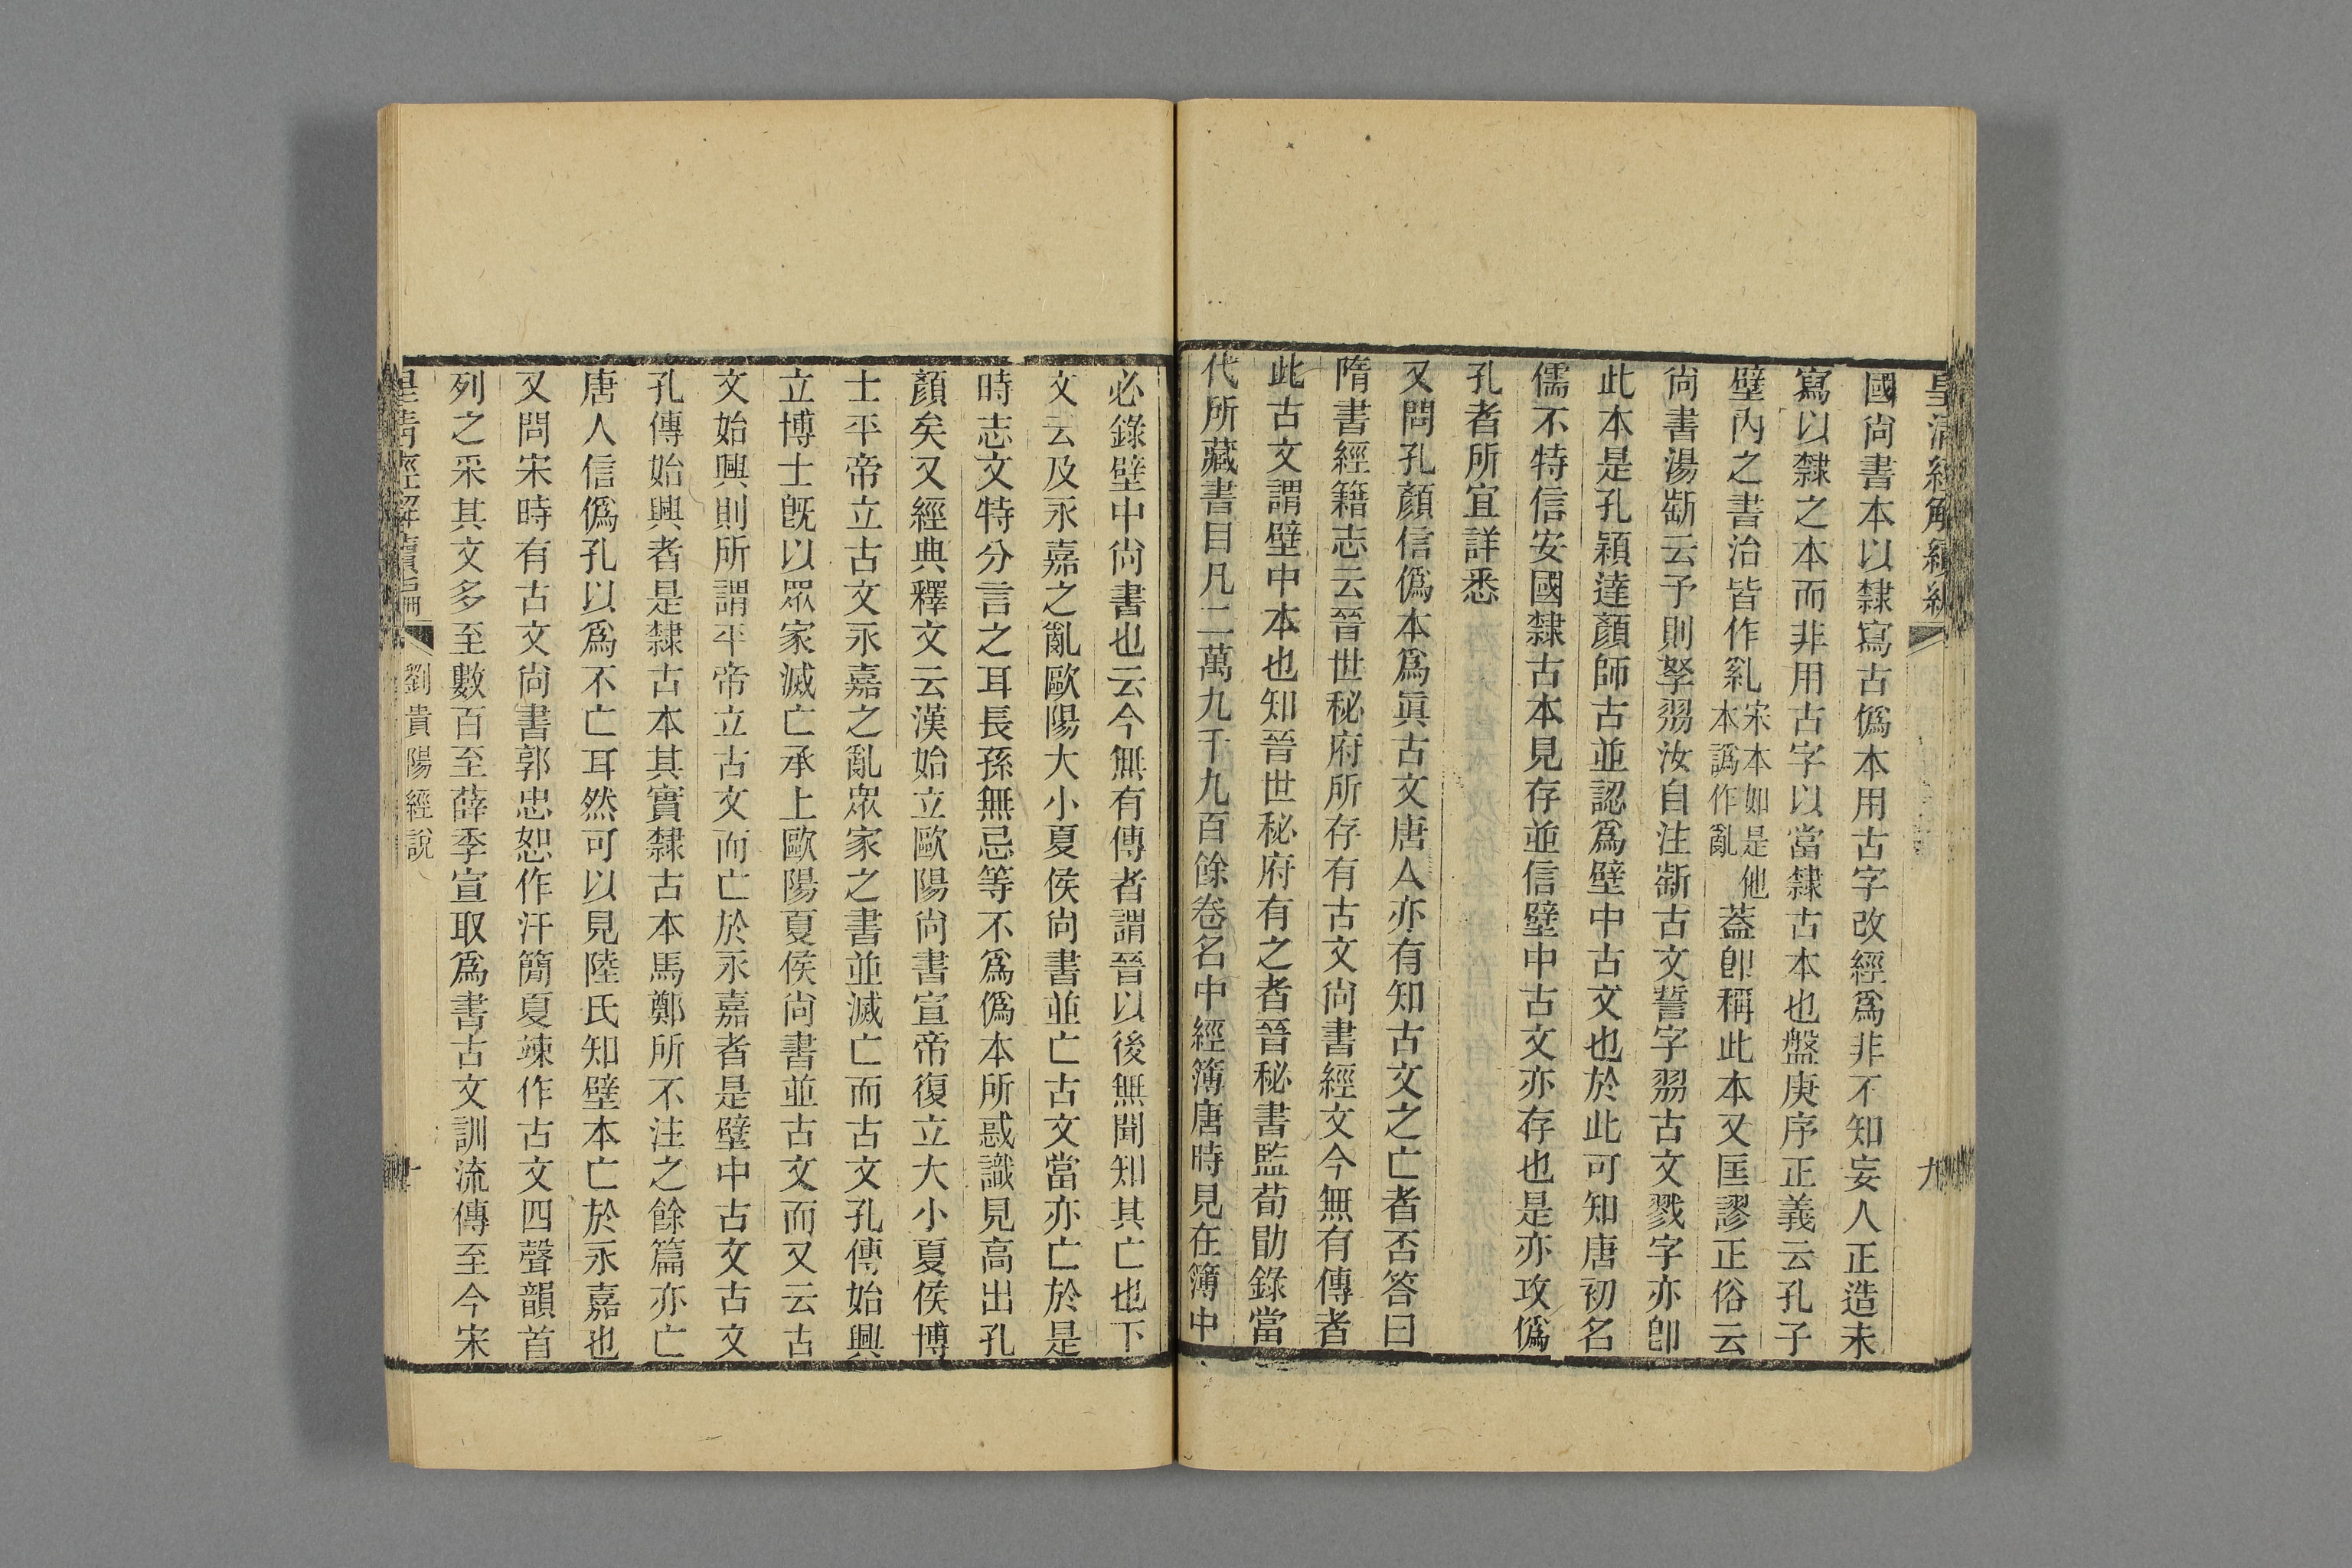 皇清經解續編
九
國尚書本以隸寫古僞本用古字改經爲非不知妄人正造未
寫以隸之本而非用古字以當隸古本也盤庚序正義云孔子
壁內之書治皆作亂宋本如是他本譌作亂蓋卽稱此本又匡謬正俗云
尚書湯斮云予則孥𦐇汝自注斮古文誓字𦐇古文戮字亦卽
此本是孔穎達顏師古並認爲壁中古文也於此可知唐初名
儒不特信安國隸古本見存並信壁中古文亦存也是亦攻僞
孔者所宜詳悉
又問孔顏信僞本爲眞古文唐人亦有知古文之亡者否答曰
隋書經籍志云晉世秘府所存有古文尚書經文今無有傳者
此古文謂壁中本也知晉世秘府有之者晉秘書監荀勖錄當
代所藏書目凡二萬九千九百餘卷名中經簿唐時見在簿中
必錄壁中尚書也云今無有傳者謂晉以後無聞知其亡也下
文云及永嘉之亂歐陽大小夏侯尚書並亡古文當亦亡於是
時志文特分言之耳長孫無忌等不爲僞本所惑識見高出孔
顏矣又經典釋文云漢始立歐陽尚書宣帝復立大小夏侯博
士平帝立古文永嘉之亂眾家之書並滅亡而古文孔傳始興
立博士旣以眾家滅亡承上歐陽夏侯尚書並古文而又云古
文始興則所謂平帝立古文而亡於永嘉者是壁中古文古文
孔傳始興者是隸古本其實隸古本馬鄭所不注之餘篇亦亡
唐人信僞孔以爲不亡耳然可以見陸氏知壁本亡於永嘉也
又問宋時有古文尚書郭忠恕作汗簡夏竦作古文四聲韻首
列之采其文多至數百至薛季宣取爲書古文訓流傳至今宋
皇清經解續編
劉貴陽經說
十